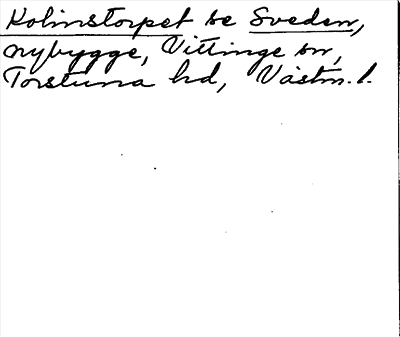 Kolinstorpet se Sveden,
nybygge, Vittinge sn,
Torstuna hd, Västm. l.